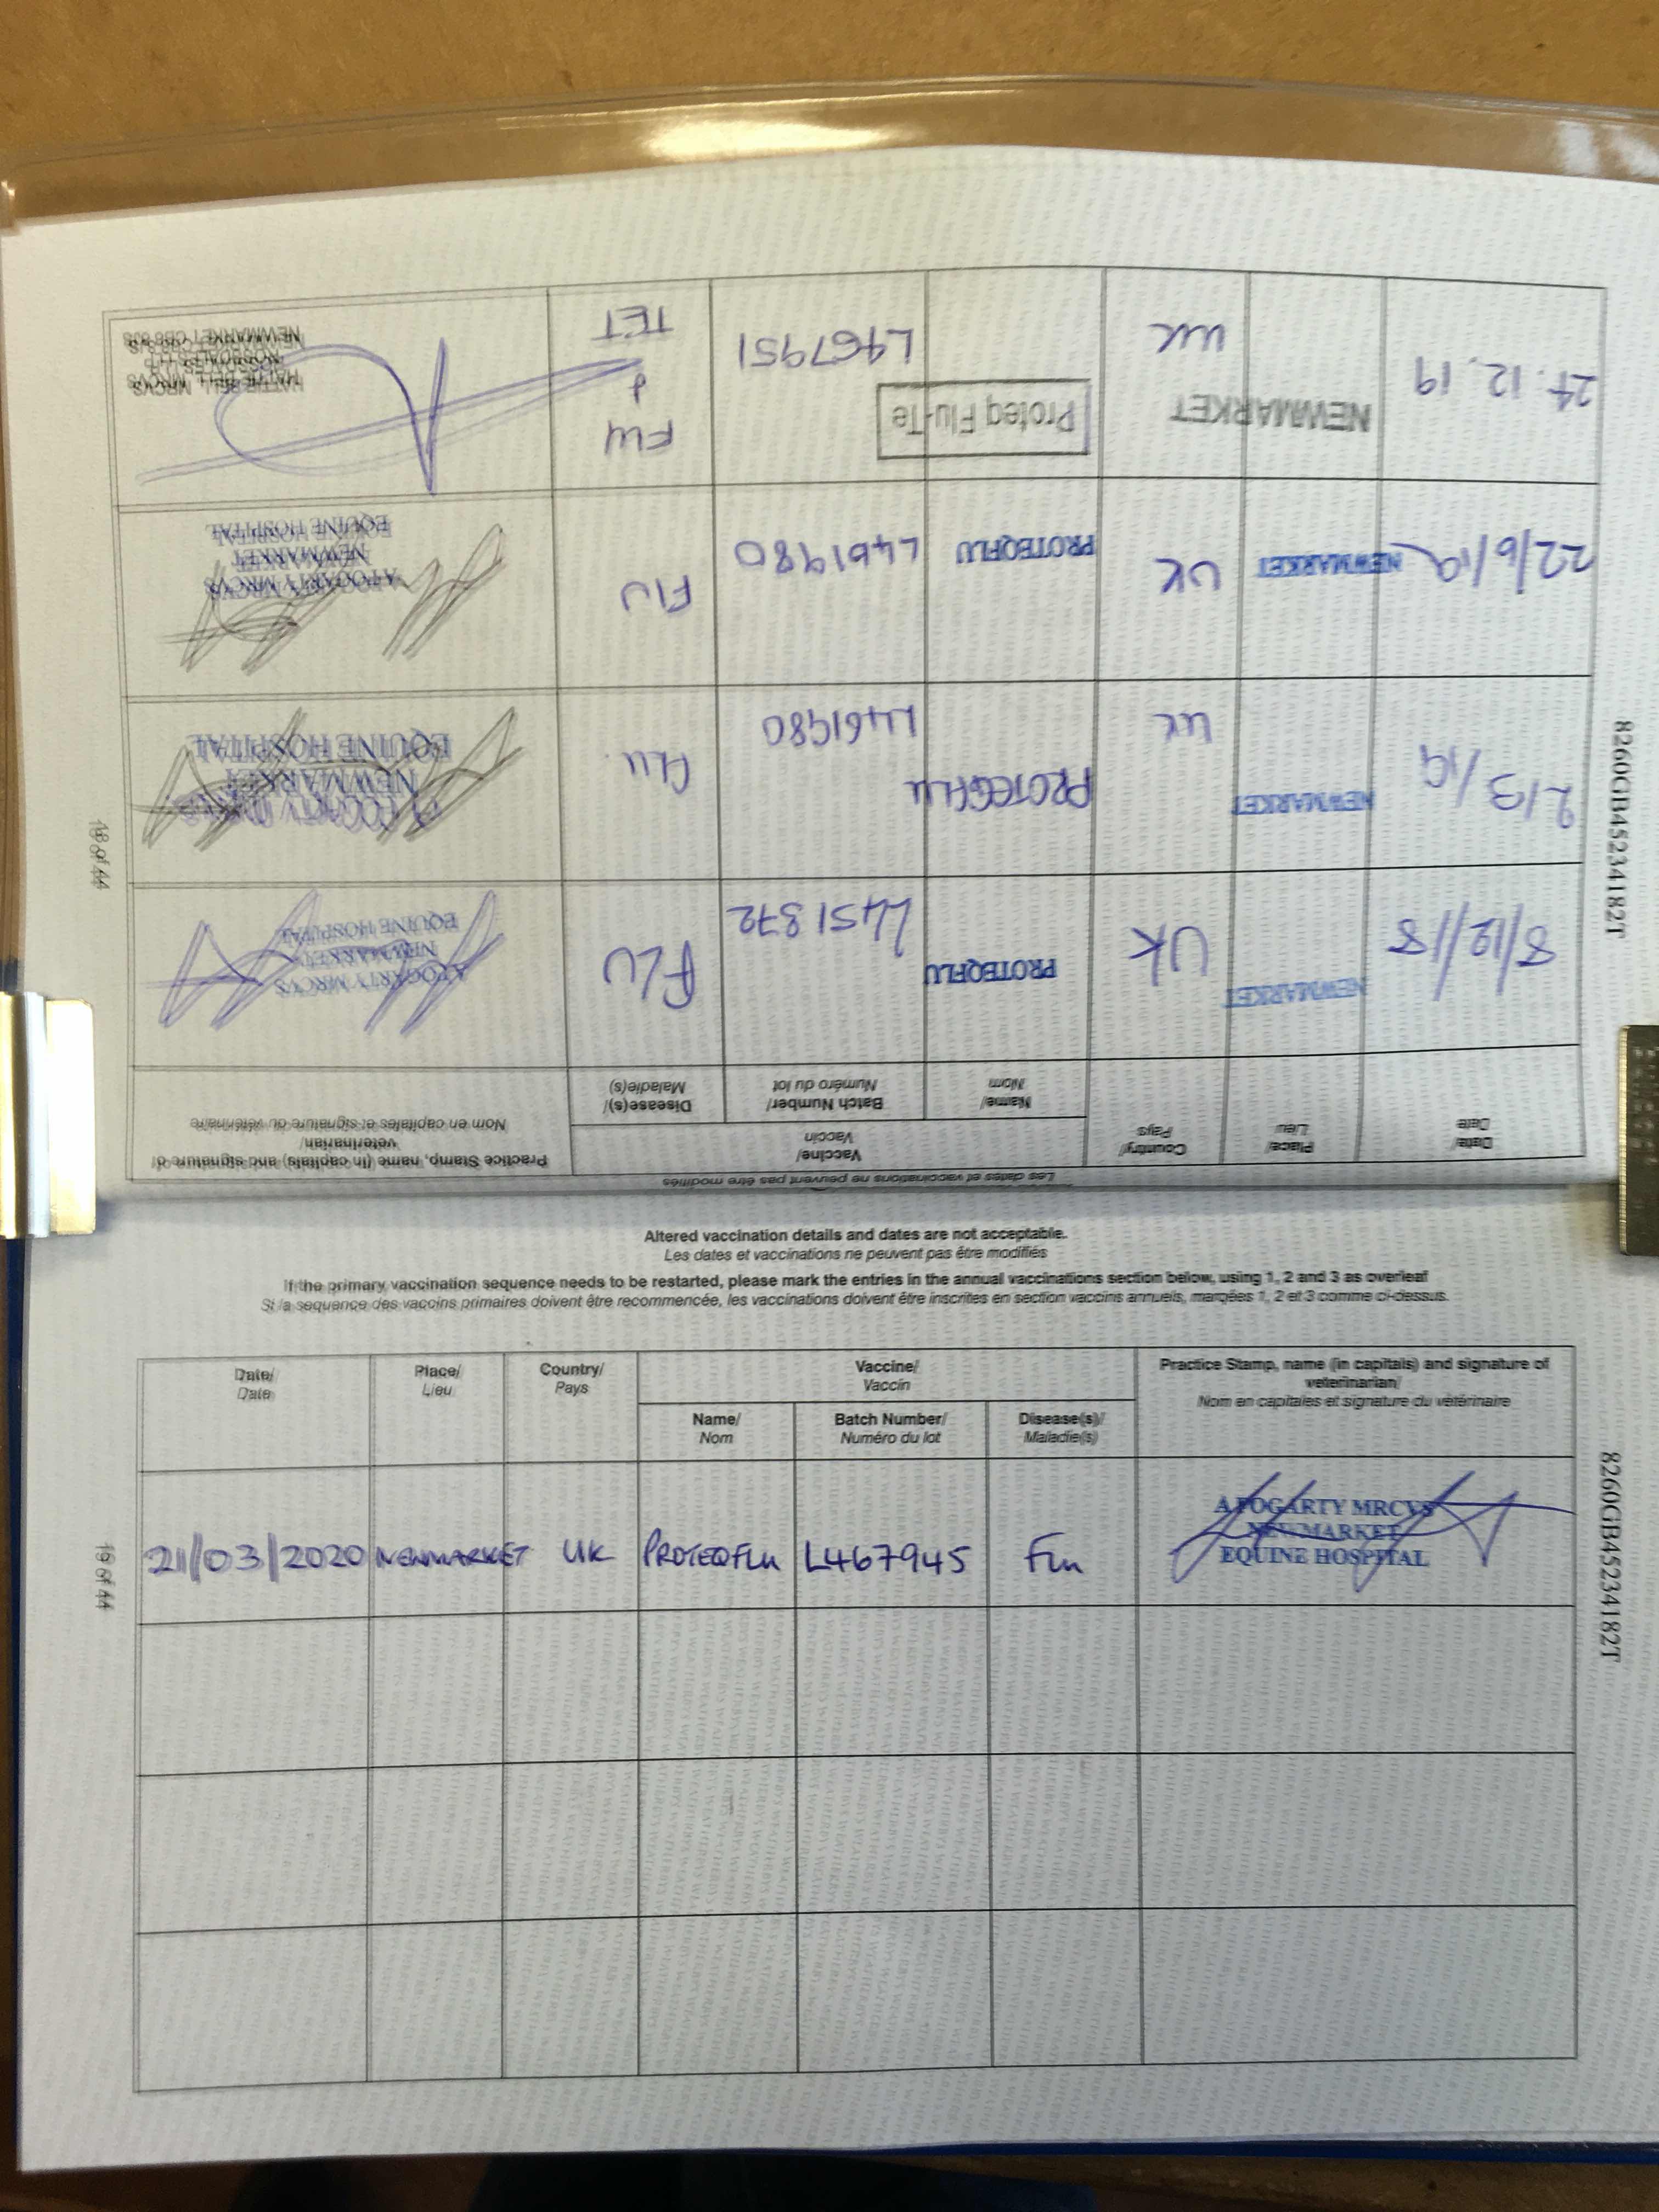 Les dates et vaccinations ne peuvent pas être modifiés
Date/
Date
Place/
Lieu
Country/
Pays
Vaccine/
Vaccin
Name/
Nom
Batch Number/
Numéro du lot
Disease(s)/
Maladie(s)
Practice Stamp, name (in capitals) and signature of
veterinarian/
Nom en capitales et signature du vétérinaire
8/12/18
NEWMARKET
UK
PROTEQFLU
L451872
FLU
A FOGARTY MRCVS
NEWMARKET
EQUINE HOSPITAL
2/3/19
NEWMARKET
UK
PROTEQFLU
L461980
Flu.
A FOGARTY MRCVS
NEWMARKET
EQUINE HOSPITAL
22/6/19
NEWMARKET
UK
PROTEQFLU
L461980
FlU
A FOGARTY MRCVS
NEWMARKET
EQUINE HOSPITAL
27.12.19
NEWMARKET
UK
Proteq Flu-Te
L467951
FLU
&
TET
HATTIE BELL MRCVS
ROSSDALES LLP
NEWMARKET CB8 8JS
18 of 44
8260GB45234182T
Altered vaccination details and dates are not acceptable.
Les dates et vaccinations ne peuvent pas être modifiés
If the primary vaccination sequence needs to be restarted, please mark the entries in the annual vaccinations section below, using 1, 2 and 3 as overleaf
Si la sequence des vaccins primaires doivent être recommencée, les vaccinations doivent être inscrites en section vaccins annuels, marqées 1, 2 et 3 comme ci-dessus.
Date/
Date
Place/
Lieu
Country/
Pays
Vaccine/
Vaccin
Name/
Nom
Batch Number/
Numéro du lot
Disease(s)/
Maladie(s)
Practice Stamp, name (in capitals) and signature of
veterinarian/
Nom en capitales et signature du vétérinaire
21/03/2020
NEWMARKET
UK
PROTEQFLU
L467945
Flu
A FOGARTY MRCVS
NEWMARKET
EQUINE HOSPITAL
19 of 44
8260GB45234182T